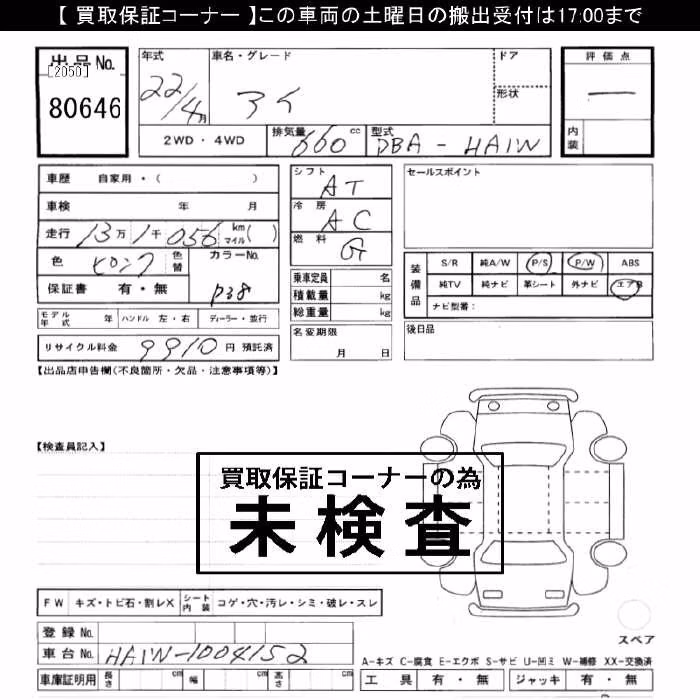 【 買取保証コーナー 】この車両の土曜日の搬出受付は17:00まで
出品No.
[2050]
80646
年式
22/4月
車名・グレード
アイ
ドア
形状
評価点
—
内装
2WD・4WD
排気量 660 cc
型式 DBA-HA1W
車歴 自家用・( )
車検 年 月
走行 13万1千056 km マイル( )
色 ピンク 色替
カラーNo. P38
保証書 有・無
モデル年式 年 ハンドル 左・右 ディーラー・並行
リサイクル料金 9910 円 預託済
シフト AT
冷房 AC
燃料 G
乗車定員 名
積載量 kg
総重量 kg
名変期限 月 日
セールスポイント
装備品
S/R 純A/W P/S P/W ABS
純TV 純ナビ 革シート 外ナビ エアB
ナビ型番：
後日品
【出品店申告欄(不良箇所・欠品・注意事項等)】
【検査員記入】
買取保証コーナーの為
未検査
FW キズ・トビ石・割レX シート内装 コゲ・穴・汚レ・シミ・破レ・スレ
登録No.
車台No. HA1W-1004152
車庫証明用 長さ cm 幅 cm 高さ cm
スペア
A-キズ C-腐食 E-エクボ S-サビ U-凹ミ W-補修 XX-交換済
工具 有・無 ジャッキ 有・無